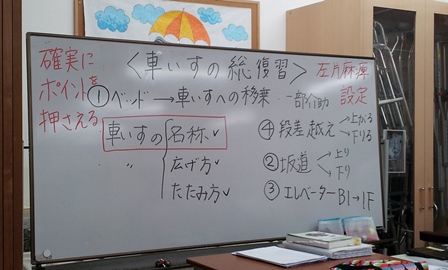 確実に
ポイントを
押さえる
＜車いすの総復習＞
左片麻痺
設定
①ベッド→車いすへの移乗 一部介助
車いすの 名称✓
〃 広げ方✓
たたみ方✓
④段差越え 上がる
下りる
②坂道 上り
下り
③エレベーターB1→1F